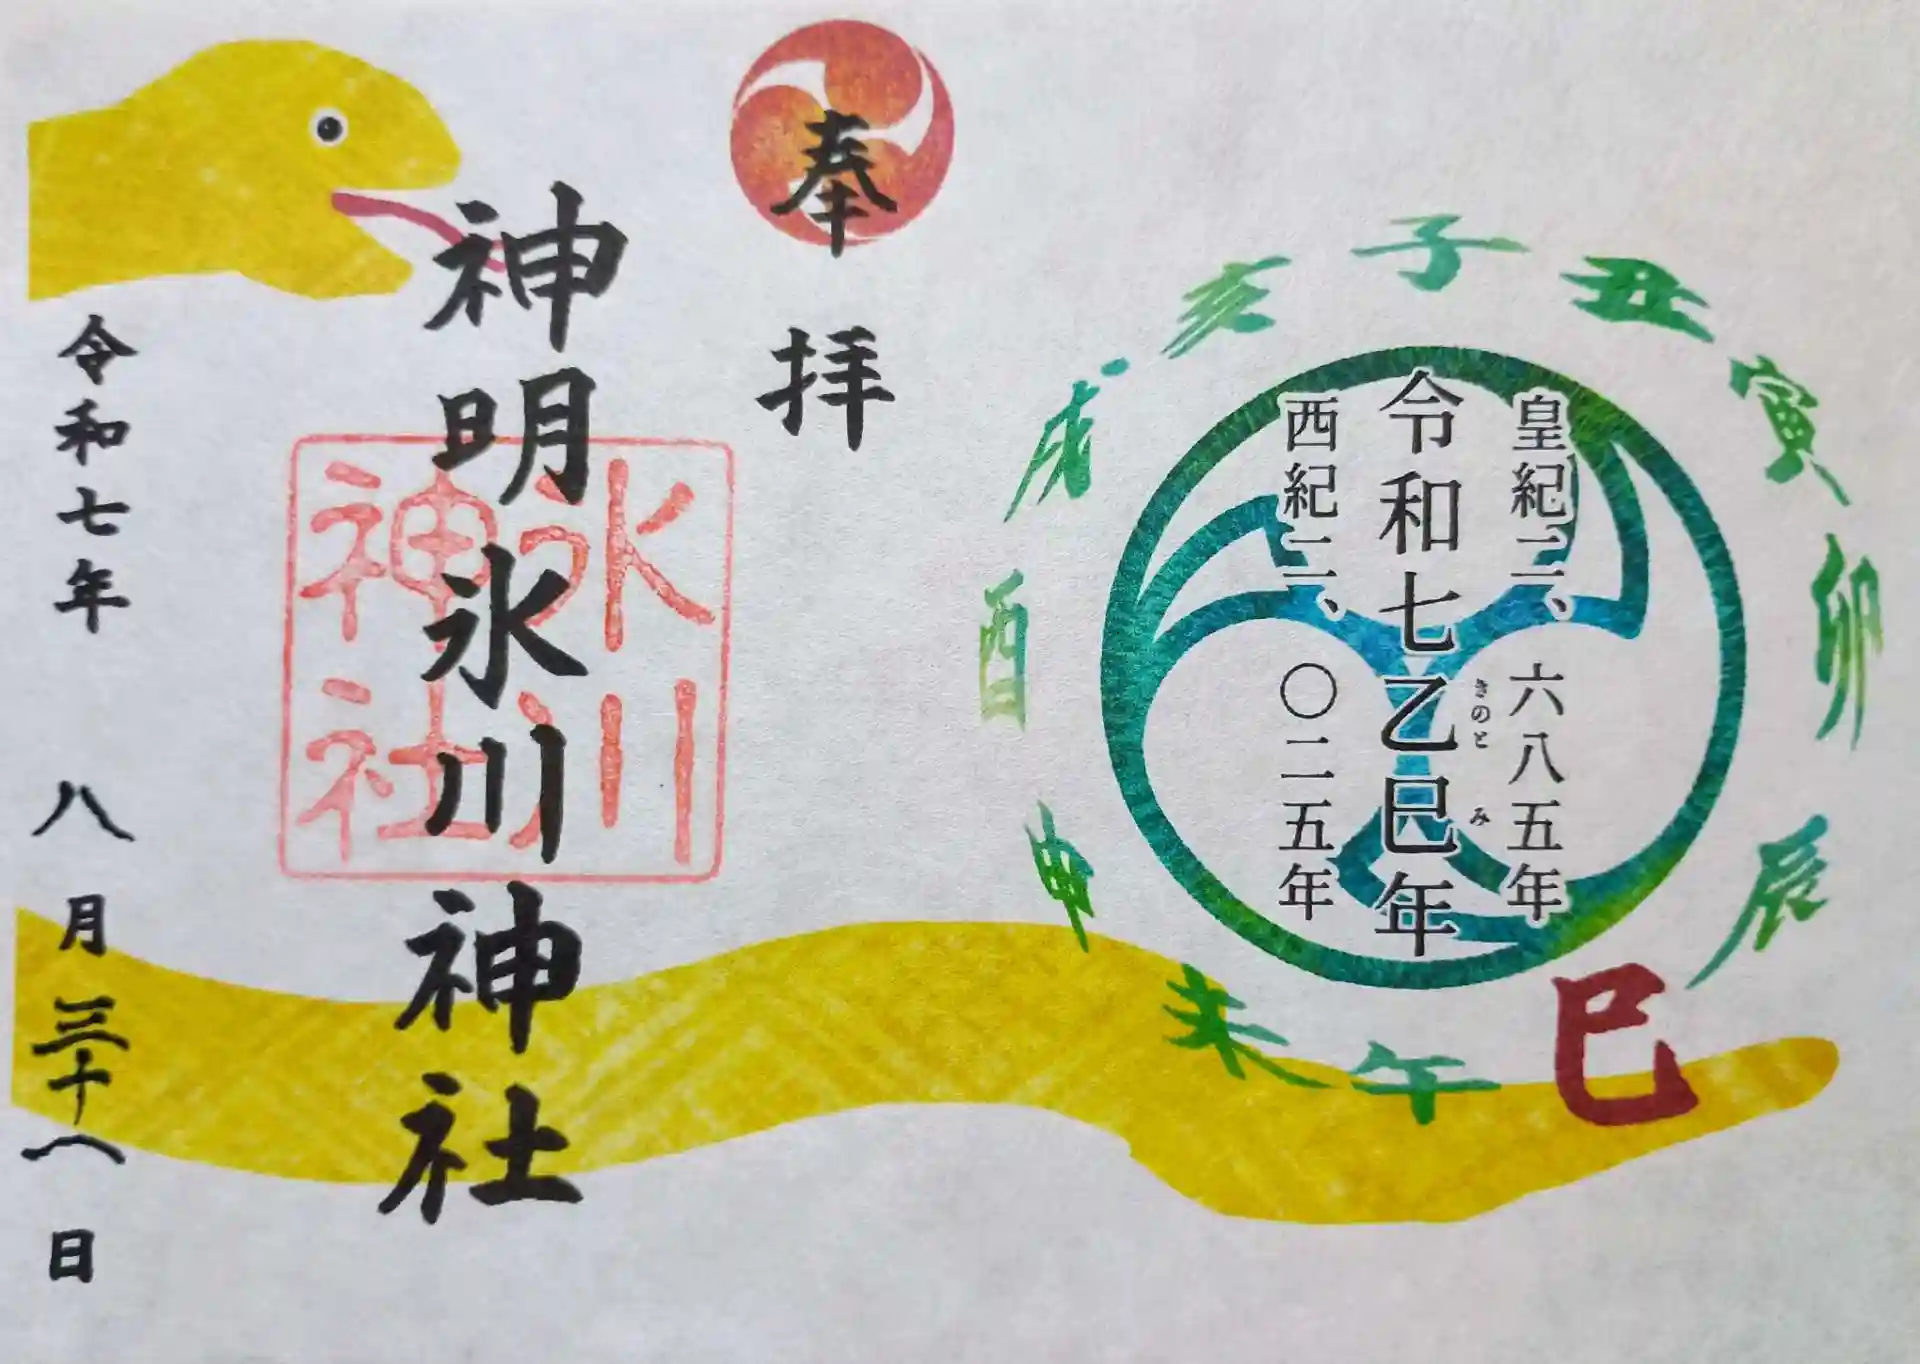 子丑寅卯辰巳午未申酉戌亥
皇紀二、六八五年
きのと み
令和七乙巳年
西紀二、〇二五年
奉拝
神明氷川神社
氷川
神社
令和七年 八月三十一日